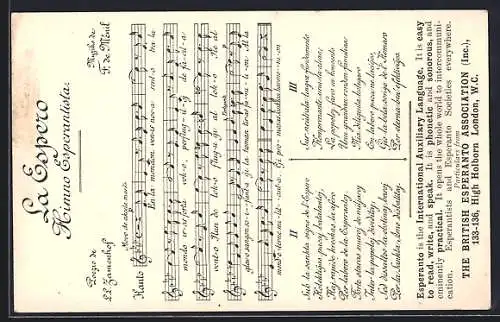 La Espero
Himno Esperantista.
Poezio de
LL Zamenhof
Muziko de
F. de Ménil
Kanto
En la mondon venis nova sen-to, tra la
mondo iras forta vok-o, per flug-il-oj de fa-cil-a
vent-o Nun de lok-o flug-u ĝi al lok-o. Ne al
glavo sangon so-if-ant-a ĝi la homan tiras fa-mi-li-on al la
mond' e-terne mi-lit-ant-a Ĝi pro-mes-as sanktan har-mo-ni-on
II
Sub la sankta signo de l'Espero
Kolektiĝas pacaj batalantoj,
Kaj rapide kreskas la afero
Per laboro de la Esperantoj.
Forte staras muroj de miljaroj
Inter la popoloj dividitaj;
Sed dissaltos la obstinaj baroj
Per la Sankta Amo disbatitaj.
III
Sur neŭtrala lingva fundamento
Komprenante unu la alian,
La popoloj faros en konsento
Unu grandan rondon familian
Nia diligenta kolegaro
En laboro paca ne laciĝos,
Ĝis la bela sonĝo de l'homaro
Por eterna ben' efektiviĝos.
Esperanto is the International Auxiliary Language. It is easy
to read, write, and speak. It is phonetic and sonorous, and
eminently practical. It opens the whole world to intercommuni-
cation. Esperantists and Esperanto Societies everywhere.
Particulars from
THE BRITISH ESPERANTO ASSOCIATION (Inc.),
133-136, High Holborn London, W.C.